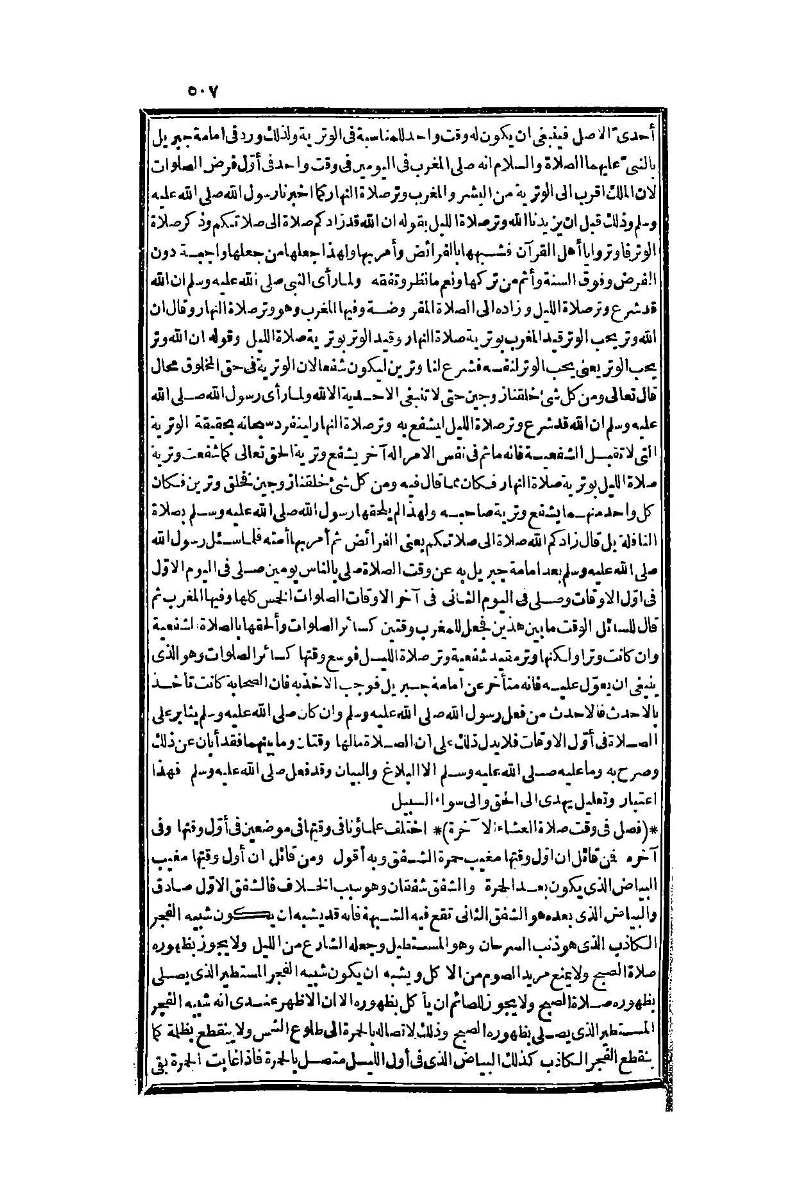 ٥٠٧
أحدىّ الاصل فينبغى ان يكون له وقت واحد للمناسبة فى الوترية ولذلك ورد فى امامة جبريل
بالنبىّ عليهما الصلاة والسلام انه صلى المغرب فى اليومين فى وقت واحد فى أوّل فرض الصلوات
لان الملك اقرب الى الوترية من البشر والمغرب وتر صلاة النهار كما اخبرنا رسول الله صلى الله عليه
وسلم وذلك قبل ان يزيدنا الله وتر صلاة الليل بقوله ان الله قد زادكم صلاة الى صلاتكم وذكر صلاة
الوتر فاوتروا يا أهل القرآن فشبهها بالفرائض وأمر بها ولهذا جعلها من جعلها واجبة دون
الفرض وفوق السنة وأثم من تركها ونعم ما نظر وتفقه ولما رأى النبى صلى الله عليه وسلم ان الله
قد شرع وتر صلاة الليل وزاده الى الصلاة المفروضة وفيها المغرب وهو وتر صلاة النهار وقال ان
الله وتر يحب الوتر قيد المغرب بوترية صلاة النهار وقيد الوتر بوترية صلاة الليل وقوله ان الله وتر
يحب الوتر يعنى يحب الوتر لنفسه فشرع لنا وترين ليكون شفعا لان الوترية فى حق المخلوق محال
قال تعالى ومن كل شئ خلقنا زوجين حتى لا تنبغى الاحدية الا لله ولما رأى رسول الله صلى الله
عليه وسلم ان الله قد شرع وتر صلاة الليل ليشفع به وتر صلاة النهار لينفرد سبحانه بحقيقة الوترية
التى لا تقبل الشفعية فانه ما ثم فى نفس الامر اله آخر يشفع وترية الحق تعالى كما شفعت وترية
صلاة الليل بوترية صلاة النهار فكان مما قال فيه ومن كل شئ خلقنا زوجين فخلق وترين فكان
كل واحد منهما يشفع وترية صاحبه ولهذا لم يلحقها رسول الله صلى الله عليه وسلم بصلاة
النافلة بل قال زادكم الله صلاة الى صلاتكم يعنى الفرائض ثم أمر بها أمته فلما سئل رسول الله
صلى الله عليه وسلم بعد امامة جبريل به عن وقت الصلاة صلى بالناس يومين صلى فى اليوم الاوّل
فى اوّل الاوقات وصلى فى اليوم الثانى فى آخر الاوقات الصلوات الخمس كلها وفيها المغرب ثم
قال للسائل الوقت ما بين هذين فجعل للمغرب وقتين كسائر الصلوات وألحقها بالصلاة الشفعية
وان كانت وترا ولكنها وتر مقيد شفعية وتر صلاة الليل فوسع وقتها كسائر الصلوات وهو الذى
ينبغى ان يعوّل عليه فانه متأخر عن امامة جبريل فوجب الاخذ به فان الصحابة كانت تأخذ
بالاحدث فالاحدث من فعل رسول الله صلى الله عليه وسلم وان كان صلى الله عليه وسلم يثابر على
الصلاة فى أوّل الاوقات فلا يدل ذلك على ان الصلاة مالها وقتان وما بينهما فقد أبان عن ذلك
وصرح به وما عليه صلى الله عليه وسلم الا البلاغ والبيان وقد فعل صلى الله عليه وسلم فهذا
اعتبار وتعليل يهدى الى الحق والى سواء السبيل
*(فصل فى وقت صلاة العشاء الآخرة)* اختلف علماؤنا فى وقتها فى موضعين فى أوّل وقتها وفى
آخره فمن قائل ان اوّل وقتها مغيب حمرة الشفق وبه أقول ومن قائل ان أول وقتها مغيب
البياض الذى يكون بعد الحمرة والشفق شفقان وهو سبب الخلاف فالشفق الاوّل صادق
والبياض الذى بعده هو الشفق الثانى تقع فيه الشبهة فانه قد يشبه ان يكون شبيه الفجر
الكاذب الذى هو ذنب السرحان وهو المستطيل وجعله الشارع من الليل ولا يجوز بظهوره
صلاة الصبح ولا يمنع مريد الصوم من الاكل ويشبه ان يكون شبيه الفجر المستطير الذى يصلى
بظهوره صلاة الصبح ولا يجوز للصائم ان يأكل بظهوره الا ان الاظهر عندى انه شبيه الفجر
المستطير الذى يصلى بظهوره الصبح وذلك لاتصاله بالحمرة الى طلوع الشمس ولا ينقطع بظلمة كما
ينقطع الفجر الكاذب كذلك البياض الذى فى أول الليل متصل بالحمرة فاذا غابت الحمرة بقى